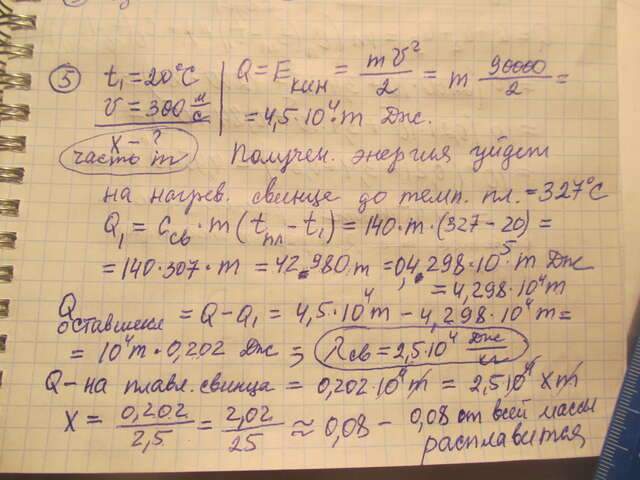 ⑤ t₁ = 20°C | Q = Eкин = mv²/2 = m 90000/2 =
v = 300 м/с | = 4,5·10⁴·m Дж.
x - ?
часть m
Получен. энергия уйдет
на нагрев. свинца до темп. пл. = 327°C
Q₁ = Cсв · m (tпл - t₁) = 140·m·(327 - 20) =
= 140·307·m = 42980 m = 0,4298·10⁵·m Дж
= 4,298·10⁴m
Qоставшееся = Q - Q₁ = 4,5·10⁴m - 4,298·10⁴m =
= 10⁴m·0,202 Дж ; λсв = 2,5·10⁴ Дж/кг
Q - на плавл. свинца = 0,202·10⁴m = 2,5·10⁴ xm
X = 0,202/2,5 = 2,02/25 ≈ 0,08 - 0,08 от всей массы
расплавится